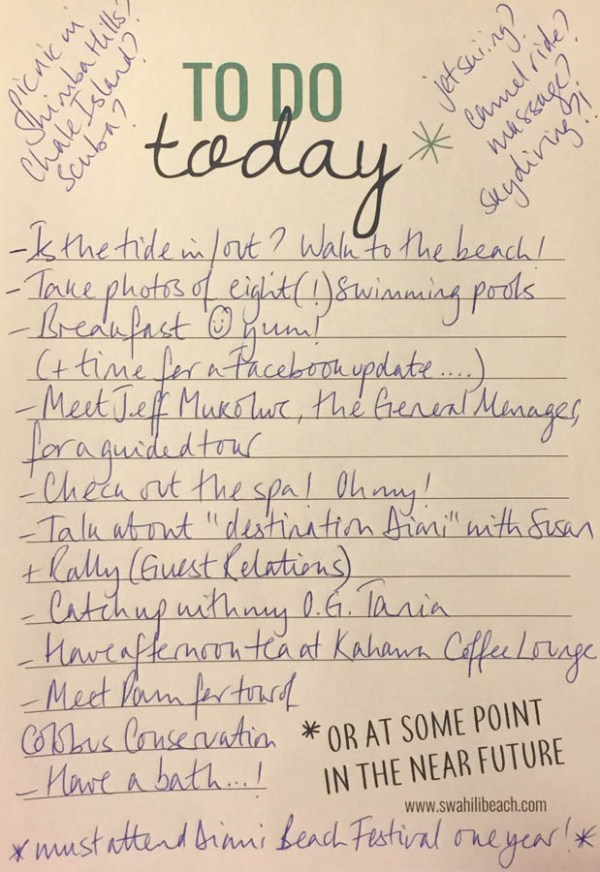 Picnic in
Shimba Hills?
Chale Island?
Scuba?
jetskiing?
Camel ride?
massage?
skydiving?!
TO DO
today*
- Is the tide in/out? Walk to the beach!
- Take photos of eight(!) swimming pools
- Breakfast ☺ yum!
(+ time for a Facebook update....)
- Meet Jeff Mukolwe, the General Manager,
for a guided tour
- Check out the spa! Oh my!
- Talk about "destination Diani" with Susan
+ Rally (Guest Relations)
- Catch up with my O.G. Tania
- Have afternoon tea at Kahawa Coffee Lounge
- Meet Pam for tour of
Colobus Conservation
- Have a bath...!
* OR AT SOME POINT
IN THE NEAR FUTURE
www.swahilibeach.com
* must attend Diani Beach Festival one year! *